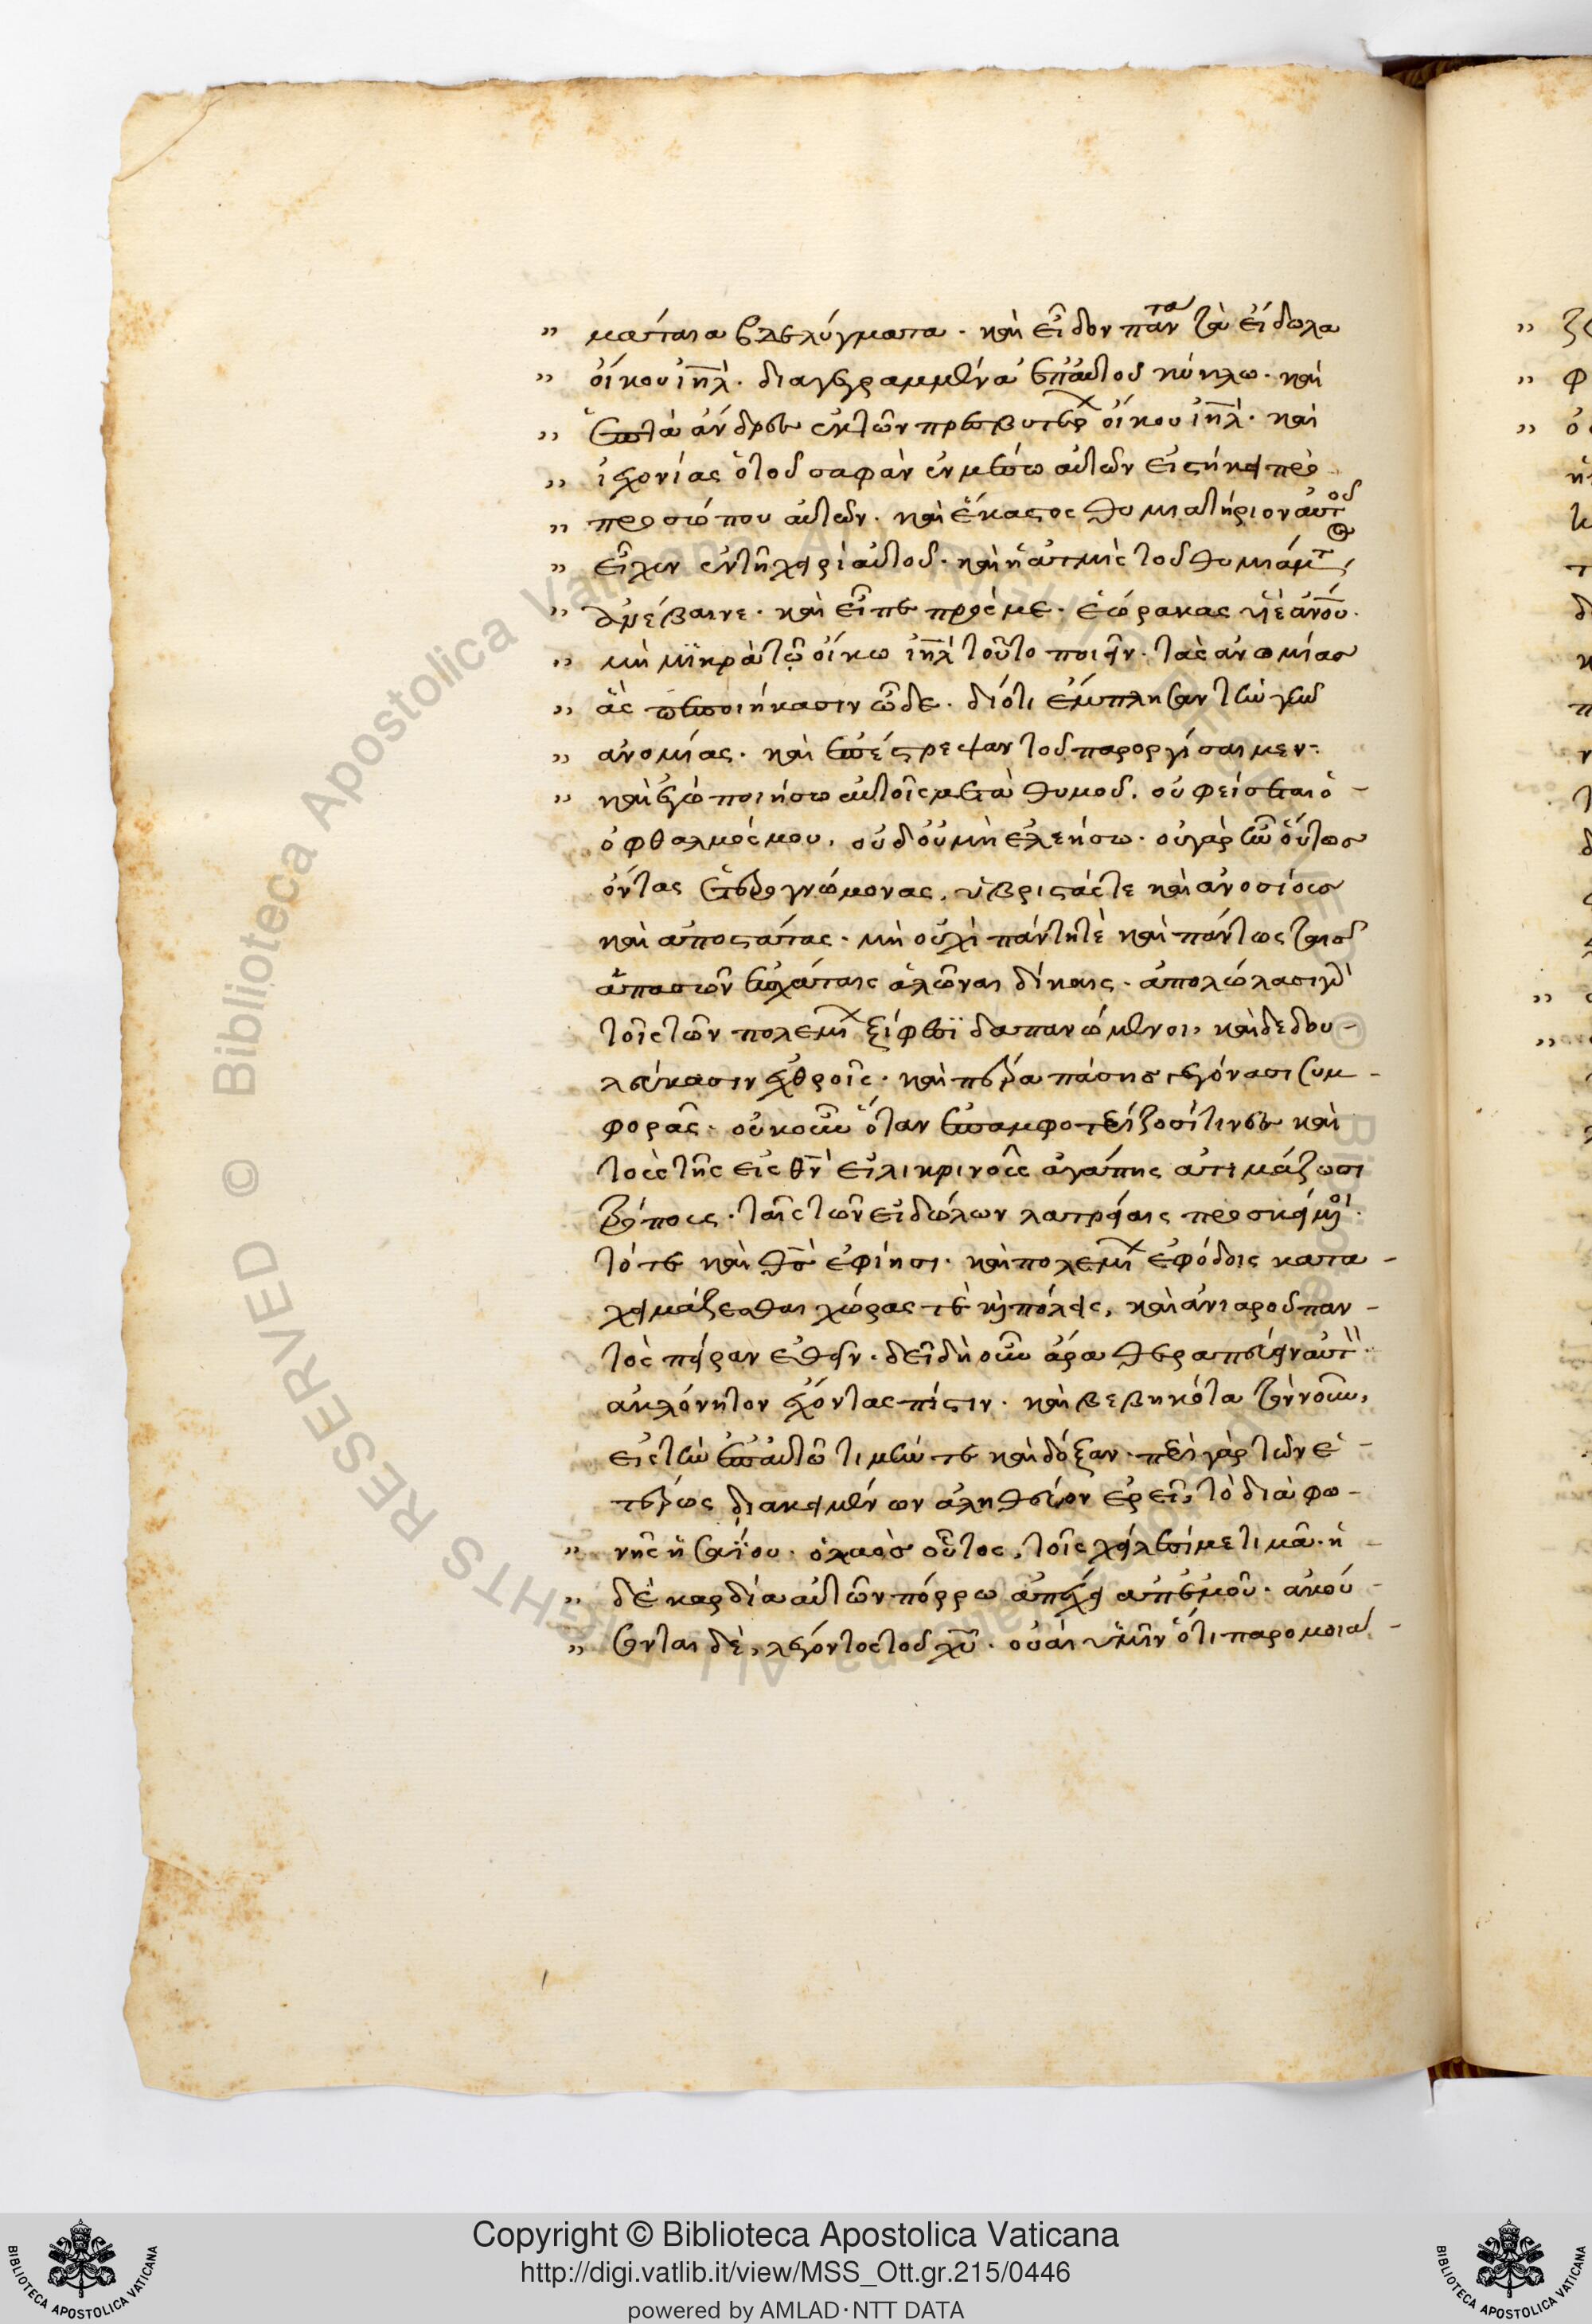 " μάταια βδελύγματα · καὶ εἶδον πάντα τὰ εἴδωλα
" οἴκου ἰηλ̅ · διαγεγραμμένα ἐπ' αὐτοῦ κύκλω · καὶ
" ἑπτὰ ἄνδρες ἐκ τῶν πρεσβυτέρ οἴκου ἰηλ̅ · καὶ
" ἰεχονίας ὁ τοῦ σαφὰν ἐν μέσω αὐτῶν εἱστήκει πρὸ
" προσώπου αὐτῶν · καὶ ἕκαστος θυμιατήριον αὐτοῦ
" εἶχεν ἐν τῆ χειρὶ αὐτοῦ · καὶ ἡ ἀτμὶς τοῦ θυμιάματος
" ἀνέβαινε · καὶ εἶπε πρός με · ἑώρακας υἱὲ ἀνου̅ ·
" μὴ μικρὰ τῶ οἴκω ἰηλ̅ τοῦτο ποιεῖν · τὰς ἀνομίας
" ἃς πεποιήκασιν ὧδε · διότι ἔμπλησαν τὴν γῆν
" ἀνομίας · καὶ ἐπέστρεψαν τοῦ παροργίσαι με ·
" καὶ ἐγὼ ποιήσω αὐτοῖς μετὰ θυμοῦ · οὐ φείσεται ὁ -
ὀφθαλμός μου, οὐδ' οὐ μὴ ἐλεήσω · οὐ γὰρ ἦν οὕτως
ὄντας ἑτερογνώμονας, ὑβριστάς τε καὶ ἀνοσίους
καὶ ἀποστάτας · μὴ οὐχὶ πάντη τὲ καὶ πάντως ταῖς
ἁπασῶν ἐσχάταις ἁλῶναι δίκαις · ἀπολώλασι γὰρ
τοῖς τῶν πολεμί ξίφεσι δαπανώμενοι, καὶ δεδου -
λεύκασιν ἐχθροῖς · καὶ πέρα πάσης γεγόνασι συμ -
φορᾶς · οὐκοῦν ὅταν ἐπαμφοτερίζοσί τινες καὶ
τοὺς τῆς εἰς θν̅ εἰλικρινοῦς ἀγάπης ἀτιμάζωσι
τρόπους · ταῖς τῶν εἰδώλων λατρείαις προσκείμενοι ·
τότε καὶ θς̅ ἐφίησι · καὶ πολεμί ἐφόδοις κατα -
χειμάζεσθαι χώρας τὲ καὶ πόλεις, καὶ ἀνιαροῦ παν -
τὸς πεῖραν ἐλθεῖν · δεῖ δὴ οὖν ἄρα θεραπεύειν αὐτ ·
ἀκλόνητον ἔχοντας πίστιν · καὶ βεβηκότα τὸν νοῦν,
εἰς τὴν ἐπ' αὐτῶ τιμήν τε καὶ δόξαν · περὶ γὰρ τῶν ἑ -
τέρως διακειμένων ἀληθεύον ἐρεῖ, τὸ διὰ φω -
" νῆς ἡσαΐου · ὁ λαὸς οὗτος, τοῖς χείλεσί με τιμᾶ · ἡ -
" δὲ καρδία αὐτῶν πόρρω ἀπέχει ἀπ' ἐμοῦ · ἀκού -
" σονται δὲ, λέγοντος τοῦ χυ̅ · οὐαὶ ὑμῖν ὅτι παρομοιά -
Copyright © Biblioteca Apostolica Vaticana
http://digi.vatlib.it/view/MSS_Ott.gr.215/0446
powered by AMLAD·NTT DATA